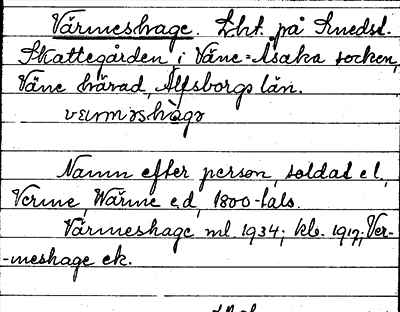 Värmeshage. Lht. på Smedst.
Skattegården i Väne-Åsaka socken,
Väne härad, Älfsborgs län.
Namn efter person, soldat el.
Verme, Wärme e.d, 1800-tals.
Värmeshage ml 1934; klr. 1917; Ver-
-meshage ek.